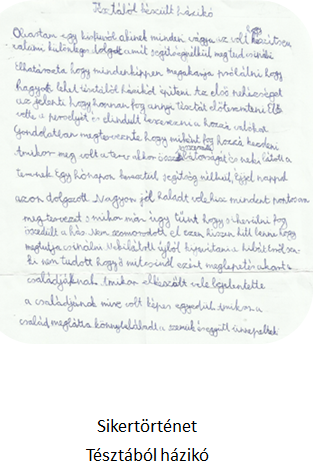 Tésztából készült házikó
Olvastam egy kisfiúról akinek minden vágya az volt készítsen
valami különleges dolgot amit segítség nélkül meg tud csinálni
Elhatározta hogy mindenképpen megpakarja próbálni hogy
hogyan lehet tésztából házikót építeni. Az első nehézséget
az jelenti hogy honnan fog annyi tésztát előteremteni. Elő
vette a perselyét és elindult beszerezni a hozzá valókat
Gondolatban megtervezte hogy miként fog hozzá kezdeni
Amikor meg volt a terv akkor össze bátorságát és neki látott a
tervnek Egy hónapon keresztül segítség nélkül, éjjel nappal
azon dolgozott. Nagyon jól haladt vele hisz mindent pontosan
megtervezett s mikor már úgy tűnt hogy sikerülni fog
összedőlt a ház. Nem szomorodott el ezen hiszen hitt benne hogy
megtudja csinálni. Nekilátott újból kijavítani a hibát. Erről sen-
ki nem tudott hogy ő mit csinál ezért meglepetés akart
családjáknak. Amikor elkészült vele bejelentette
a családjának mire volt képes egyedül. Amikor a
család meglátta könny lábadt a szemük és együtt ünnepeltek
Sikertörténet
Tésztából házikó